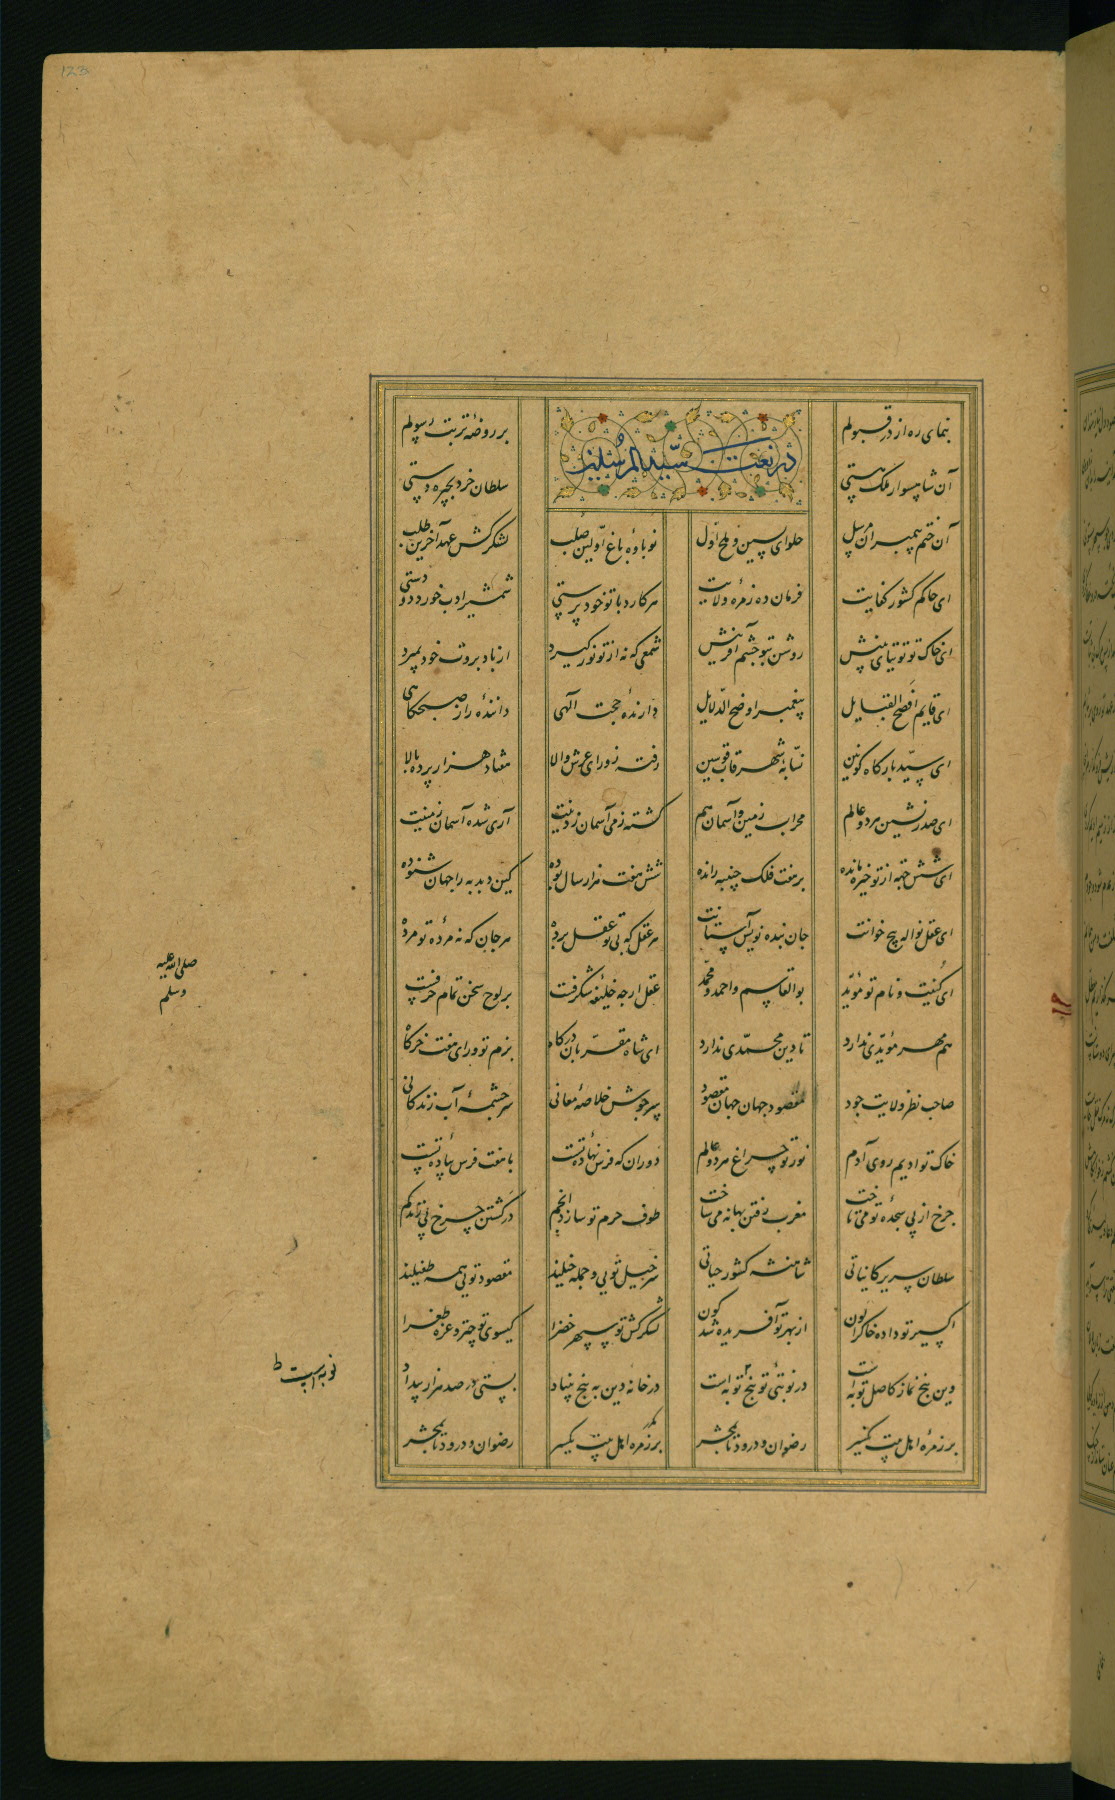 بنمای ره از در قبولم بر روضهٔ تربت رسولم
در نعت سیّد المرسلین
آن شاهسوار ملک هستی سلطان خرد بچیره دستی
آن ختم پیمبران مرسل حلوای پسین و ملح اول نوباوهٔ باغ اولین صلب لشکرکش عهد آخرین طلب
ای حاکم کشور کفایت فرمان ده زمرهٔ ولایت هر کارد با تو خود پرستی شمشیر ادب خورد دو دستی
ای خاک تو توتیای بینش روشن بتو چشم آفرینش شمعی که نه از تو نور گیرد از باد بروت خود بمیرد
ای قایم افصح القبایل پیغمبر اوضح الدلایل دارندهٔ حجت الهی دانندهٔ راز صبحگاهی
ای سیّد بارگاه کونین نسّابهٔ شهر قاب قوسین رفته ز ورای عرش والا هفتاد هزار پرده بالا
ای صدر نشین هر دو عالم محراب زمین و آسمان هم گشته زمی آسمان ز دینت آری شده آسمان زمینت
ای شش جهه از تو خیره مانده بر هفت فلک جنیبه رانده شش هفت هزار سال بوده کین دبدبه را جهان شنوده
ای عقل نواله پیچ خوانت جان بنده نویس آستانت هر عقل که بی تو عقل برده هر جان که نه مردهٔ تو مرده
ای کنیت و نام تو مؤیّد بوالقاسم و احمد و محمّد عقل ارچه خلیفهٔ شگرفست بر لوح سخن تمام حرفست
هم مهر مؤیّدی ندارد تا دین محمّدی ندارد ای شاه مقرّبان درگاه بزم تو ورای هفت خرگاه
صاحب نظر ولایت جود مقصود جهان جهان مقصود سرجوش خلاصهٔ معانی سرچشمهٔ آب زندگانی
خاک تو ادیم روی آدم نور تو چراغ هر دو عالم دوران که فرس نهادهٔ تست با هفت فرس پیادهٔ تست
چرخ از پی سجدهٔ تو می تاخت مغرب رفتن بهانه می ساخت طوف حرم تو سازد انجم در گشتن چرخ پی زند گم
سلطان سریر کایناتی شاهنشه کشور حیاتی سرخیل تویی و جمله خیلند مقصود تویی همه طفیلند
اکسیر تو داده خاک را لون از بهر تو آفریده شد کون لشکرکش تو سپهر خضرا گیسوی تو چتر و غمزه طغرا
وین پنج نماز کاصل توبه است در نوبتی تو پنج نوبه است در خانهٔ دین به پنج بنیاد بستی در صد هزار بیداد
بر زمرهٔ اهل بیت رضوان و درود تا بمحشر بر زمرهٔ اهل بیت یکسر رضوان و درود تا بمحشر
صلی الله علیه وسلم
نوبه است ط
123